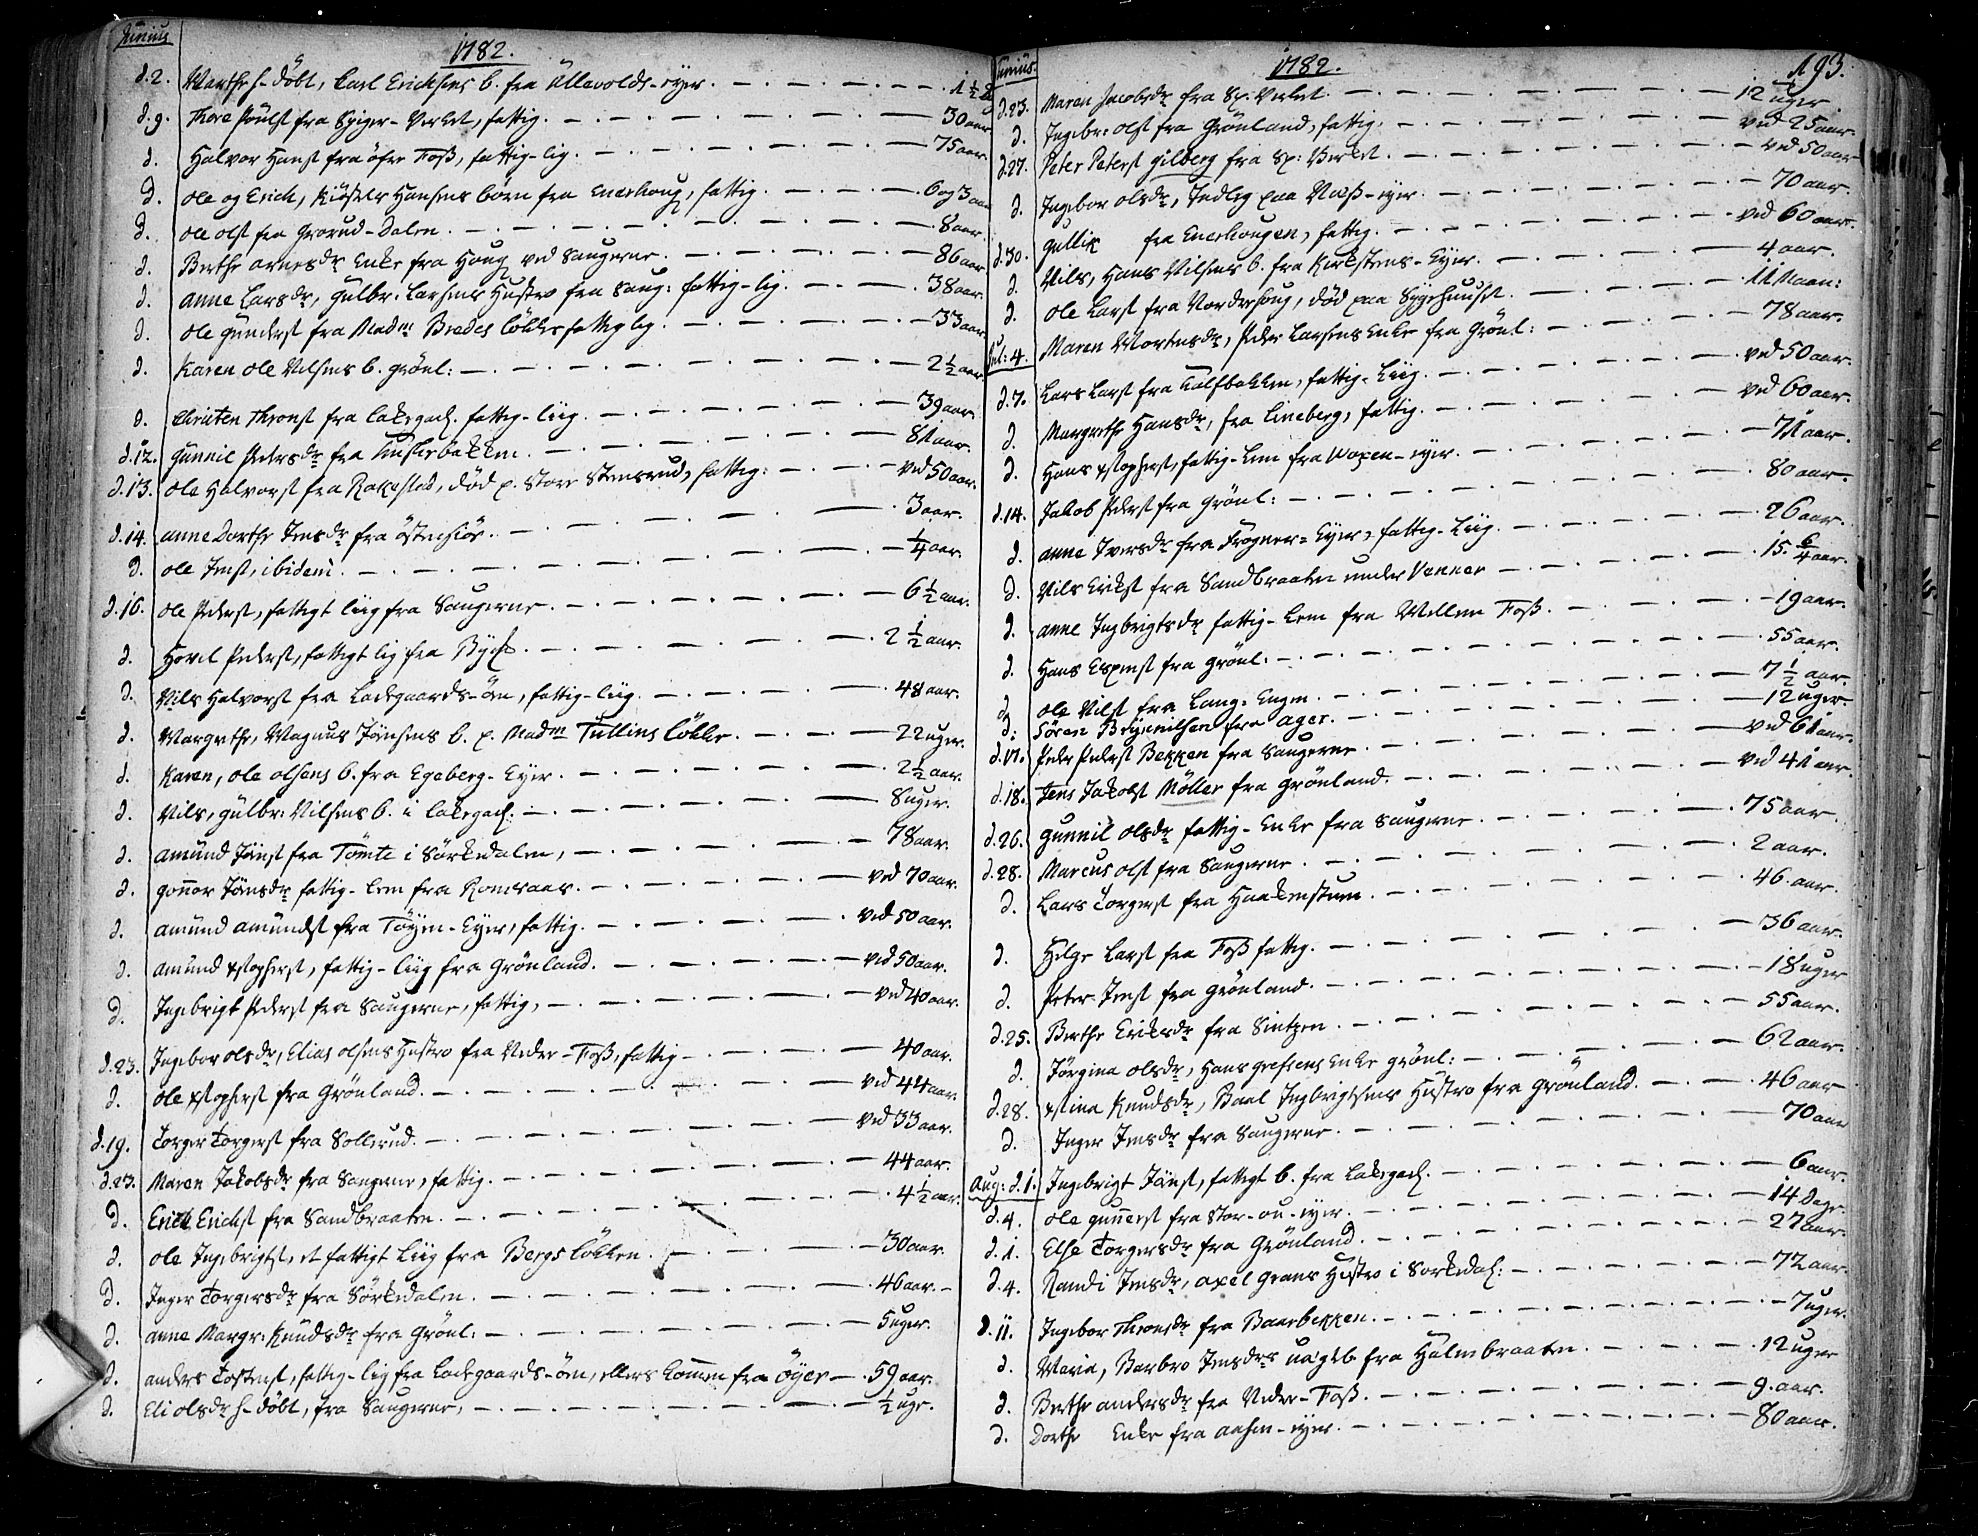 Junius
1782.
d. 2. Marthe h-döbt, Carl Erichsens b. fra Ullevolds-eyer. 1 1/2
d. 9. Thore Poulst fra Spiger-Verket, fattig. 30 aar
d. Halvor Hanst fra öfre Foss, fattig-lig. 75 aar.
d. Ole og Erich, Hansens börn fra Enerhoug, fattig. 6 og 3 aar
d. Ole Olst fra Grorud-Dalen. 8 aar.
d. Berthe Arnesdr Enke fra Houg ved Saugerne. 86 aar
d. Anne Larsdr, Gulbr: Larsens Hustro fra Saug: fattig-lig. 38 aar.
d. Ole Gunderst fra Madm Bredes lökke fattig lig. 33 aar
d. Karen Ole Nilsens b. Grönl: 2 1/2 aar
d. Christen Thronst fra Ladegad. fattig-liig. 39 aar.
d. 12. Gunnil Pedersdr fra 81 aar.
d. 13. Ole Halvorst fra Rakestad, död p. Store Stensrud, fattig: ved 50 aar.
d. 14. Anne Dorthe Jensdr fra Östensiör. 3 aar.
d. Ole Jenst, ibidem. 1/4 aar.
d. 16. Ole Pederst, fattigt liig fra Saugerne. 6 1/2 aar.
d. Hovel Pederst, fattigt lig fra 2 1/2 aar.
d. Nils Halvorst fra Ladegaards-öen, fattig-liig. 48 aar.
d. Margrethe, Magnus Jönsens b. p. Madm Tullins lökke. 22 uger.
d. Karen, Ole Olsens b. fra Egeberg-Eyer. 2 1/2 aar.
d. Nils, Gulbr: Nilsens b. i Ladegad. 8 uger.
d. Amund Jönst fra Tömte i Sörkedalen, 78 aar.
d. Gonnor Jönsdr fattig-lem fra Romsaas. ved 70 aar.
d. Amund Amundst fra Töyen-Eyer, fattig. ved 50 aar.
d. Amund Xstopherst, fattig-liig fra Grönland. ved 50 aar.
d. Ingebrigt Pederst fra Saugerne, fattig, ved 40 aar.
d. 23. Ingebor Olsdr, Elias Olsens Hustro fra Neder-Foss, fattig 40 aar.
d. Ole Xstopherst fra Grönland. ved 44 aar.
d. 19. Torger Torgerst fra Sollerud. ved 33 aar.
d. 23. Maren Jakobsdr fra Saugerne, fattig. 44 aar.
d. Erich Erichst fra Sandbraaten. 4 1/2 aar.
d. Ole Ingebrigtst, et fattigt Liig fra Bergs lökken. 30 aar.
d. Inger Torgersdr fra Sörkedalen. 46 aar.
d. Anne Margr: Knudsdr fra Grönl: 5 uger.
d. Anders Tostenst, fattig-lig fra Ladegaards-öen, ellers kommen fra Öyer 59 aar.
d. Eli Olsdr h-döbt, fra Saugerne, 1/2 uge.
Junius.
1782.
193.
d. 23. Maren Jacobsdr fra Sp: Verket. 12 uger
d. Ingebr: Olst fra Grönland, fattig. ved 25 aar.
d. 27. Peter Peterst Gilberg fra Sp: Verket. ved 50 aar
d. Ingebor Olsdr, Inderst paa Næss-eyer. 70 aar.
d. 30. Gullik fra Enerhougen, fattig. ved 60 aar.
d. Nils, Hans Nilsens b. fra Kirkstens-Eyer. 4 aar.
d. Ole Larst fra Nordrehoug, död paa Sygehuuset. 11 Maan:
Jul: 4. Maren Mortensdr, Peder Larsens Enke fra Grönl: 78 aar.
d. 7. Lars Larst fra Kalfbakken, fattig-Liig. ved 50 aar.
d. Margrethe Hansdr, fra Lineberg, fattig. ved 60 aar.
d. Hans Xstopherst, fattig-lem fra Woxen-eyer. 71 aar.
d. 14. Jakob Pederst fra Grönl: 80 aar.
d. Anne Iversdr fra Frogner-Eyer, fattig-Liig. 26 aar.
d. Nils Erikst fra Sandbraaten under Vennar 15. 6/4 aar.
d. Anne Ingbrigtsdr fattig-Lem fra Mellem Foss. 19 aar.
d. Hans Espenst fra Grönl. 55 aar.
d. Ole Nilst fra Lang-Engen. 7 1/2 aar.
d: Sören Brynnilsen fra Ager. 12 uger.
d. 17. Peder Pederst Bekken fra Saugerne ved 61 aar.
d. 18. Jens Jakobst Möller fra Grönland. ved 41 aar.
d. 26. Gunnil Olsdr fattig-Enke fra Saugerne. 75 aar.
d. 28. Marcus Olst fra Saugerne. 2 aar.
d. Lars Torgerst fra Haakenstuen. 46. aar.
d. Helge Larst fra Foss fattig. 36 aar.
d. Peter Jenst fra Grönland. 18 uger
d. 25. Berthe Eriksdr fra Sintzen. 55 aar.
d. Jörgine Olsdr, Hans Grefsens Enke Grönl: 62 aar.
d. 28. Xstine Knudsdr, Baal Ingbrigtsens Hustro fra Grönland. 46 aar
d. Inger Jensdr fra Saugerne. 70 aar
Aug: d. 1. Ingebrigt Jönst, fattigt b. fra Ladegad. 6 aar.
d. 4. Ole Gunnerst fra Stor-ou-eyer. 14 Dage
d. 1. Else Torgersdr fra Grönland. 27 aar.
d. 4. Randi Jensdr, Axel Grans Hustro i Sorkedal: 72 aar.
d. 11. Ingebor Thronsdr fra Baarbekken. 7 uger.
d. Maria, Barbro Jensdrs uægte fra Halmbraaten. 12 uger
d. Berthe Andersdr fra Neder-Foss. 9. aar.
d. Dorthe Enke fra Aasen-eyer. 80 aar.